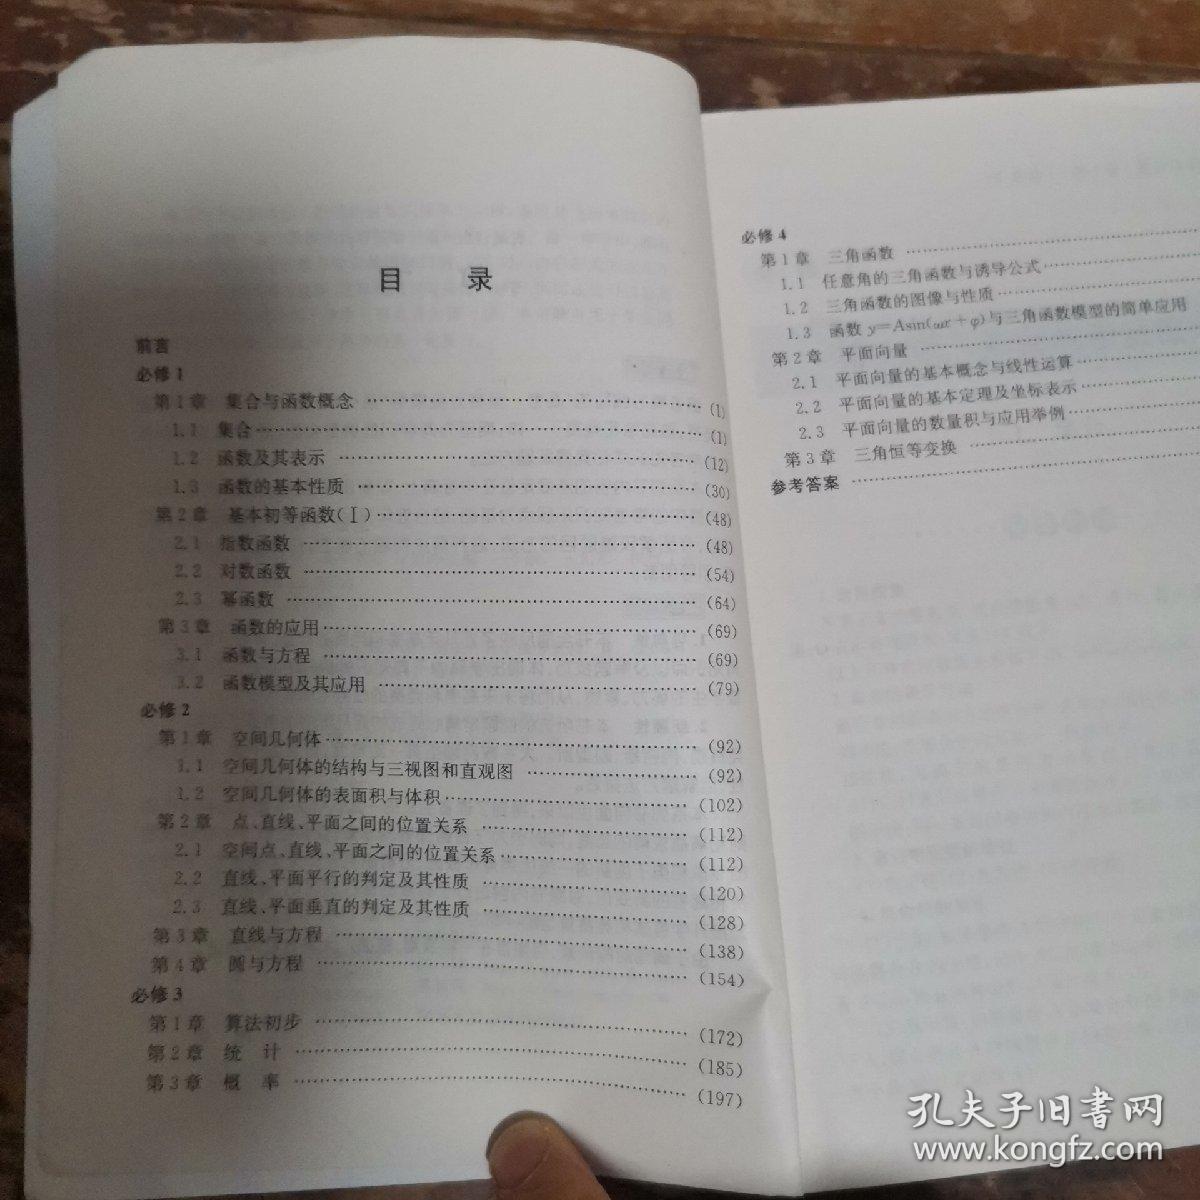 目 录
前言
必修1
第1章 集合与函数概念 (1)
1.1 集合 (1)
1.2 函数及其表示 (12)
1.3 函数的基本性质 (30)
第2章 基本初等函数(Ⅰ) (48)
2.1 指数函数 (48)
2.2 对数函数 (54)
2.3 幂函数 (64)
第3章 函数的应用 (69)
3.1 函数与方程 (69)
3.2 函数模型及其应用 (79)
必修2
第1章 空间几何体 (92)
1.1 空间几何体的结构与三视图和直观图 (92)
1.2 空间几何体的表面积与体积 (102)
第2章 点、直线、平面之间的位置关系 (112)
2.1 空间点、直线、平面之间的位置关系 (112)
2.2 直线、平面平行的判定及其性质 (120)
2.3 直线、平面垂直的判定及其性质 (128)
第3章 直线与方程 (138)
第4章 圆与方程 (154)
必修3
第1章 算法初步 (172)
第2章 统 计 (185)
第3章 概 率 (197)
必修4
第1章 三角函数
1.1 任意角的三角函数与诱导公式
1.2 三角函数的图像与性质
1.3 函数y=Asin(ωx+φ)与三角函数模型的简单应用
第2章 平面向量
2.1 平面向量的基本概念与线性运算
2.2 平面向量的基本定理及坐标表示
2.3 平面向量的数量积与应用举例
第3章 三角恒等变换
参考答案
孔夫子旧书网
www.kongfz.com